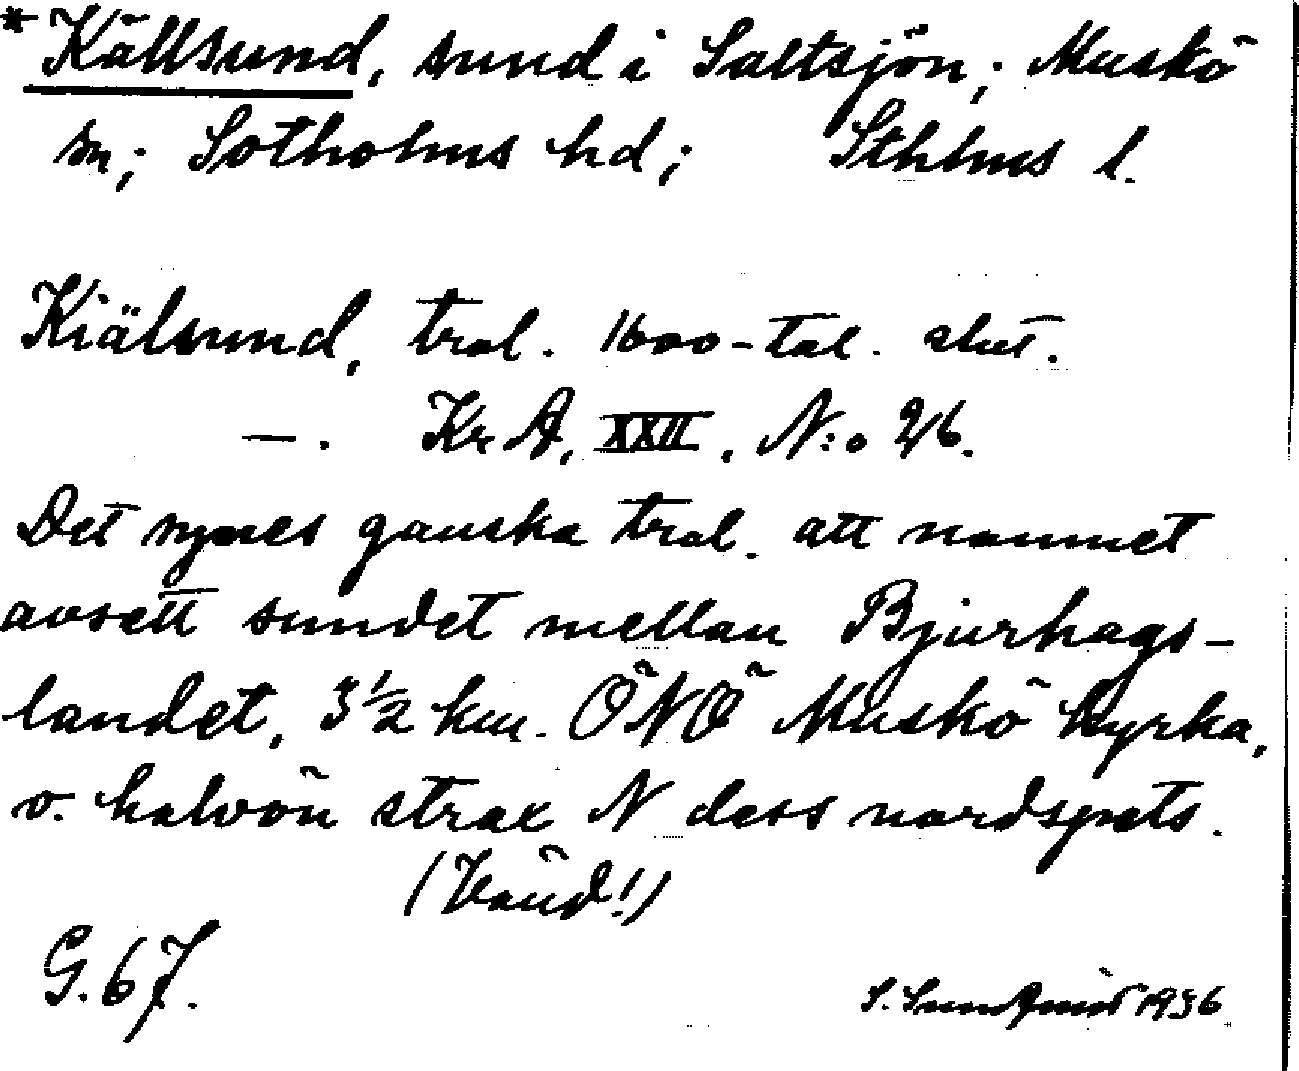 *Källsund, sund i Saltsjön; Muskö
sn; Sotholms hd; Sthlms l.
Kiälsund, trol. 1600-tal. slut.
—. Kr A, XXII, N:o 2/6.
Det synes ganska trol. att namnet
avsett sundet mellan Bjurhags-
landet, 3½ km. ÖNÖ Muskö kyrka,
o. halvön strax N dess nordspets.
(Vänd!)
G. 67.
S. Sundquist 1936